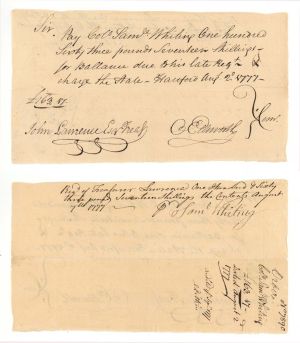 Sir
Pay Colo. Saml. Whiting One hundred
Sixty three pounds Seventeen Shillings -
for ballance due to his late Regt. &
charge the State - Hartford Augt. 2d. 1777 -
£163.17.
John Lawrence Esqr Treasr
Com
Recd. of Treasurer Lawrence One Hundd. & Sixty
three pounds Seventeen Shillings the Contents August
7th 1777
Saml. Whiting
Order
Colo. Sam Whiting
£163.17.
dated August 2
1777